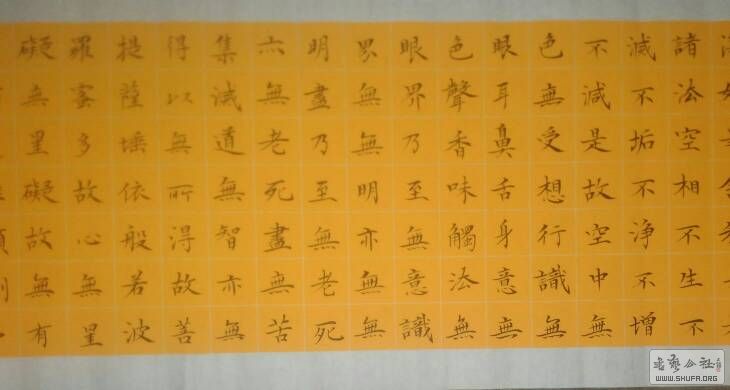 諸法空相不生不
滅不垢不淨不增
不減是故空中無
色無受想行識無
眼耳鼻舌身意無
色聲香味觸法無
眼界乃至無意識
界無無明亦無無
明盡乃至無老死
亦無老死盡無苦
集滅道無智亦無
得以無所得故菩
提薩埵依般若波
羅蜜多故心無罣
礙無罣礙故無有
书艺公社
WWW.SHUFA.ORG